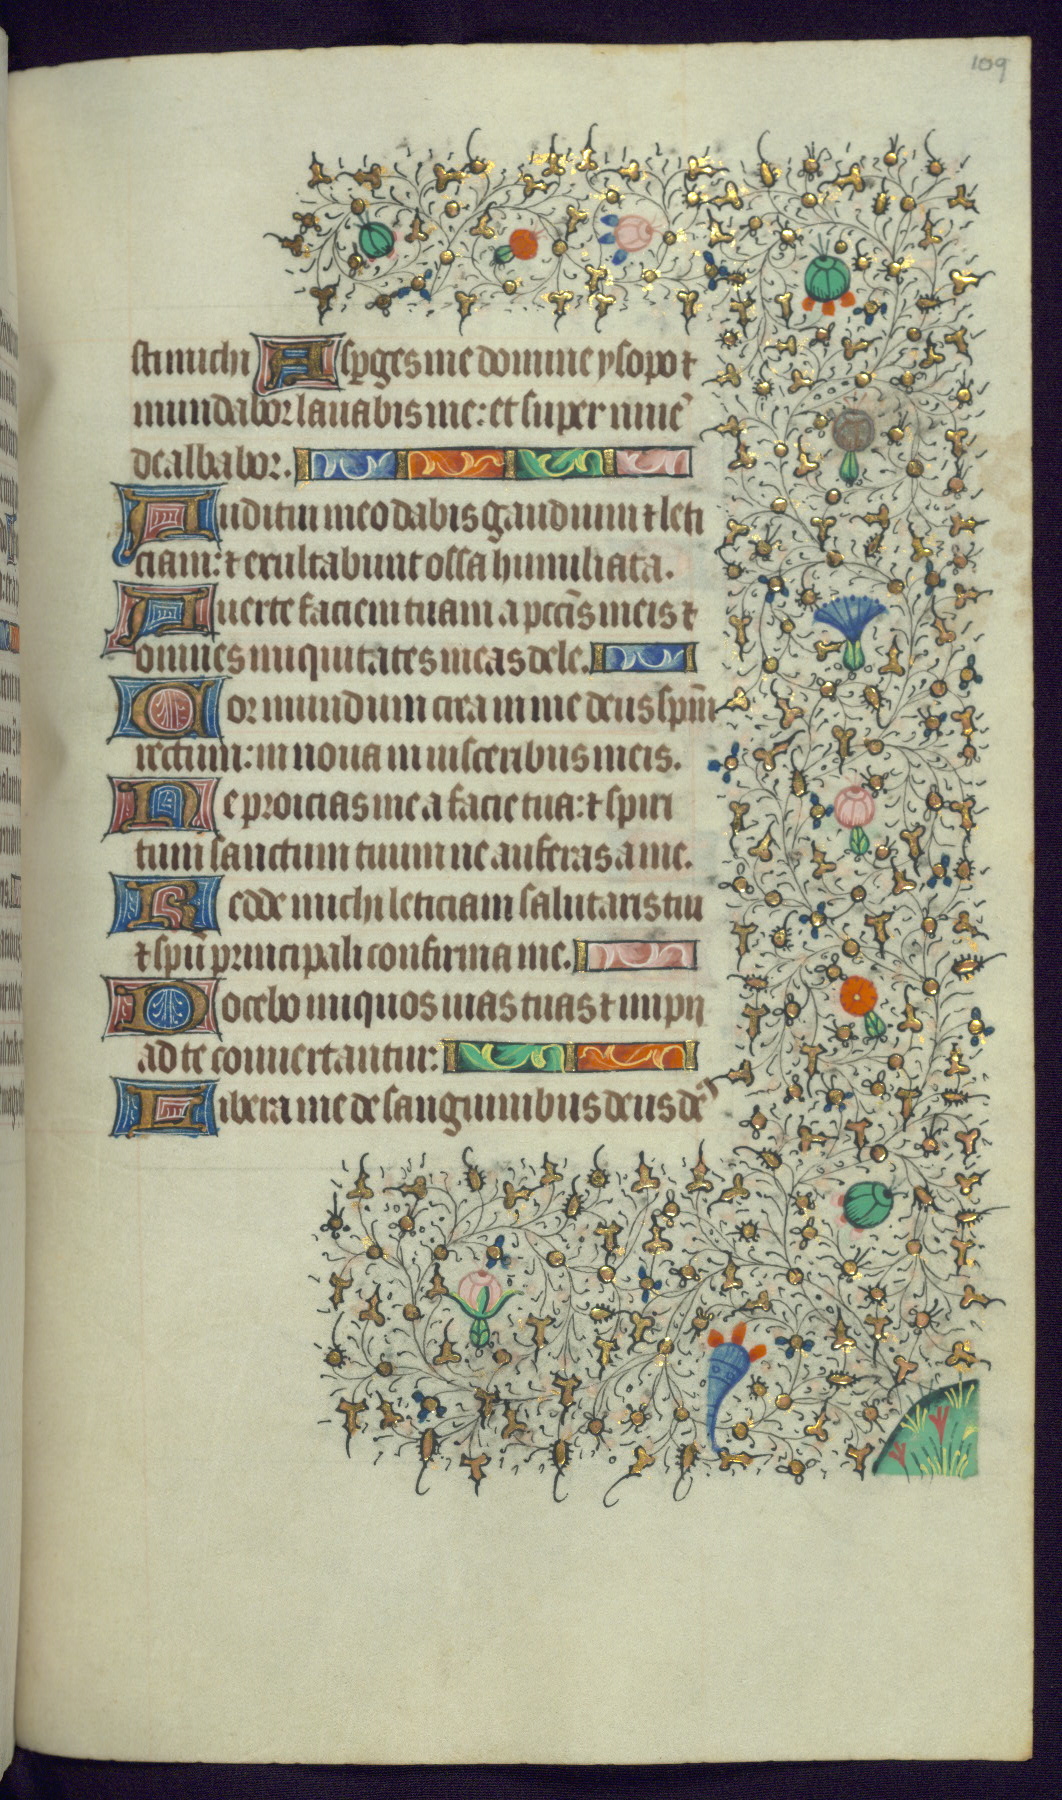 109
sti michi Asperges me domine ysopo ⁊
mundabor lauabis me: et super niuē
dealbabor.
Auditui meo dabis gaudium ⁊ leti
ciam: ⁊ exultabunt ossa humiliata.
Auerte faciem tuam a pccīs meis ⁊
omnes iniquitates meas dele.
Cor mundum crea in me deus spm̄
rectum: innoua in uisceribus meis.
Ne proicias me a facie tua: ⁊ spiri
tum sanctum tuum ne auferas a me.
Redde michi leticiam salutaris tui
⁊ spū principali confirma me.
Docebo iniquos uias tuas ⁊ impij
ad te conuertantur:
Libera me de sanguinibus deus dē